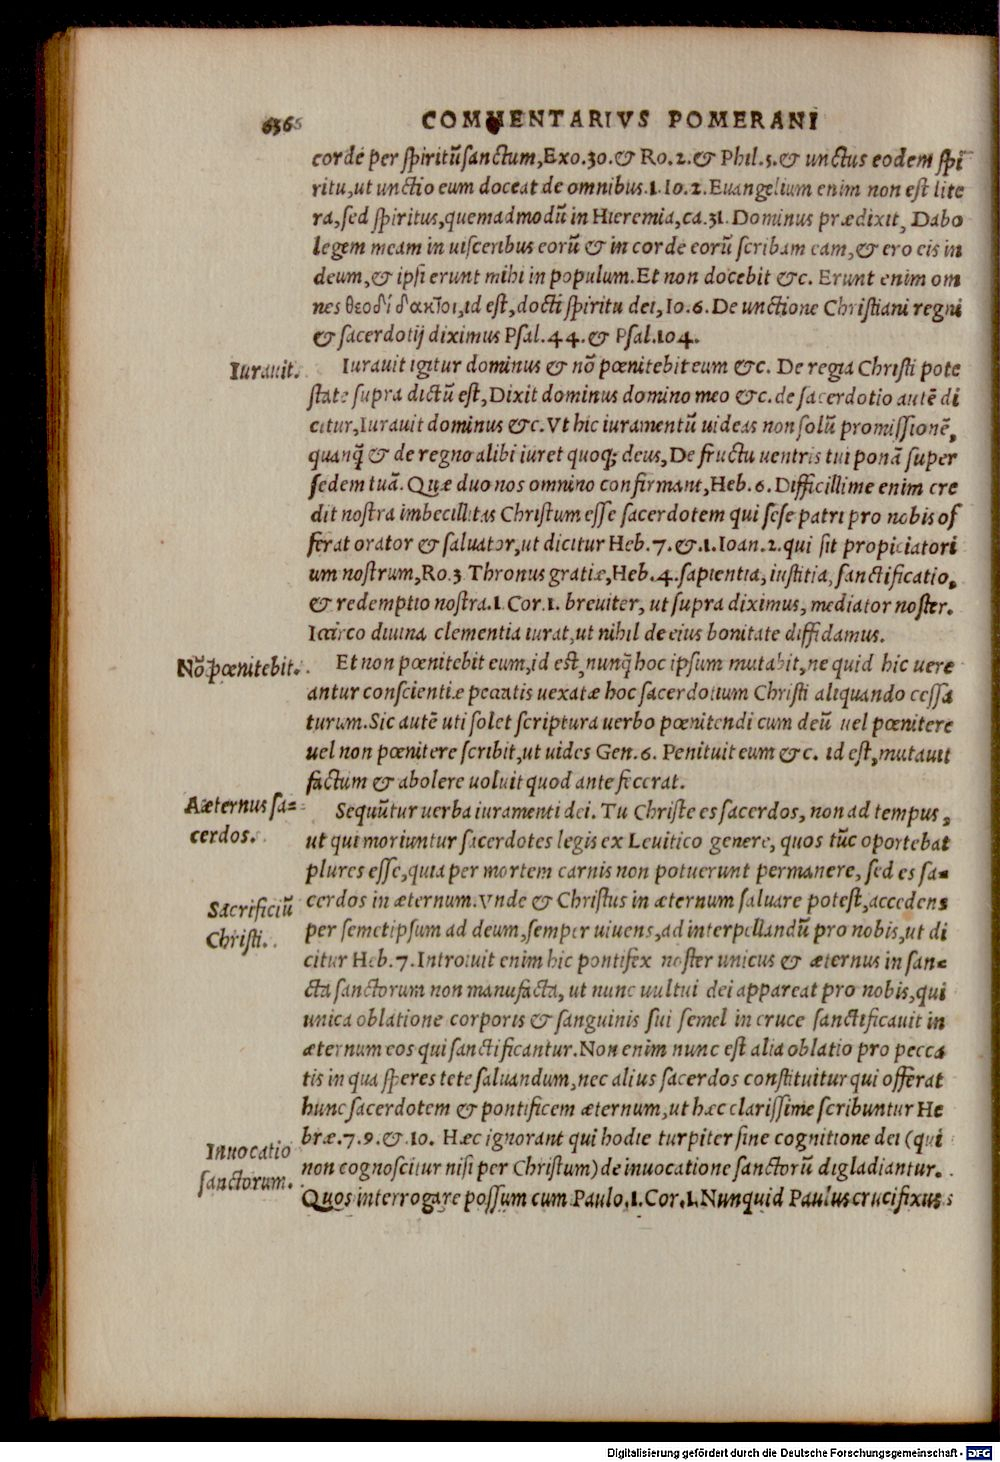 COMMENTARIVS POMERANI
corde per spiritũ sanctum, Exo.30.& Ro.2.& Phil.3.& unctus eodem spi
ritu, ut unctio eum doceat de omnibus.1.Io.2.Euangelium enim non est lite
ra, sed spiritus, quemadmodũ in Hieremia, ca.31. Dominus prædixit, Dabo
legem meam in uisceribus eorũ & in corde eorũ scribam eam, & ero eis in
deum, & ipsi erunt mihi in populum. Et non docebit &c. Erunt enim om
nes θεοδίδακτοι, id est, docti spiritu dei, Io.6. De unctione Christiani regni
& sacerdotij diximus Psal.44.& Psal.104.
Iurauit.
Iurauit igitur dominus & nõ pœnitebit eum &c. De regia Christi pote
state supra dictũ est, Dixit dominus domino meo &c. de sacerdotio autẽ di
citur, Iurauit dominus &c. Vt hic iuramentũ uideas non solũ promissionẽ,
quanq̃ & de regno alibi iuret quoq; deus, De fructu uentris tui ponã super
sedem tuã. Quæ duo nos omnino confirmant, Heb.6. Difficillime enim cre
dit nostra imbecillitas Christum esse sacerdotem qui sese patri pro nobis of
ferat orator & saluator, ut dicitur Heb.7.&.1.Ioan.2.qui sit propiciatori
um nostrum, Ro.3 Thronus gratiæ, Heb.4.sapientia, iustitia, sanctificatio,
& redemptio nostra.1.Cor.1. breuiter, ut supra diximus, mediator noster.
Idcirco diuina clementia iurat, ut nihil de eius bonitate diffidamus.
Nõ pœnitebit.
Et non pœnitebit eum, id est, nunq̃ hoc ipsum mutabit, ne quid hic uere
antur conscientiæ peccatis uexatæ hoc sacerdotium Christi aliquando cessa
turum. Sic autẽ uti solet scriptura uerbo pœnitendi cum deũ uel pœnitere
uel non pœnitere scribit, ut uides Gen.6. Penituit eum &c. id est, mutauit
factum & abolere uoluit quod ante fecerat.
Aæternus sa=
cerdos.
Sequũtur uerba iuramenti dei. Tu Christe es sacerdos, non ad tempus,
ut qui moriuntur sacerdotes legis ex Leuitico genere, quos tũc oportebat
plures esse, quia per mortem carnis non potuerunt permanere, sed es sa=
Sacrificiũ
Christi.
cerdos in æternum. Vnde & Christus in æternum saluare potest, accedens
per semetipsum ad deum, semper uiuens, ad interpellandũ pro nobis, ut di
citur Heb.7. Introiuit enim hic pontifex noster unicus & æternus in san=
cta sanctorum non manufacta, ut nunc uultui dei appareat pro nobis, qui
unica oblatione corporis & sanguinis sui semel in cruce sanctificauit in
æternum eos qui sanctificantur. Non enim nunc est alia oblatio pro pecca
tis in qua speres te te saluandum, nec alius sacerdos constituitur qui offerat
hunc sacerdotem & pontificem æternum, ut hæc clarissime scribuntur He
bræ.7.9.&.10. Hæc ignorant qui hodie turpiter sine cognitione dei (qui
Inuocatio
sanctorum.
non cognoscitur nisi per Christum) de inuocatione sanctorũ digladiantur.
Quos interrogare possum cum Paulo,1.Cor.1. Nunquid Paulus crucifixus
Digitalisierung gefördert durch die Deutsche Forschungsgemeinschaft - DFG